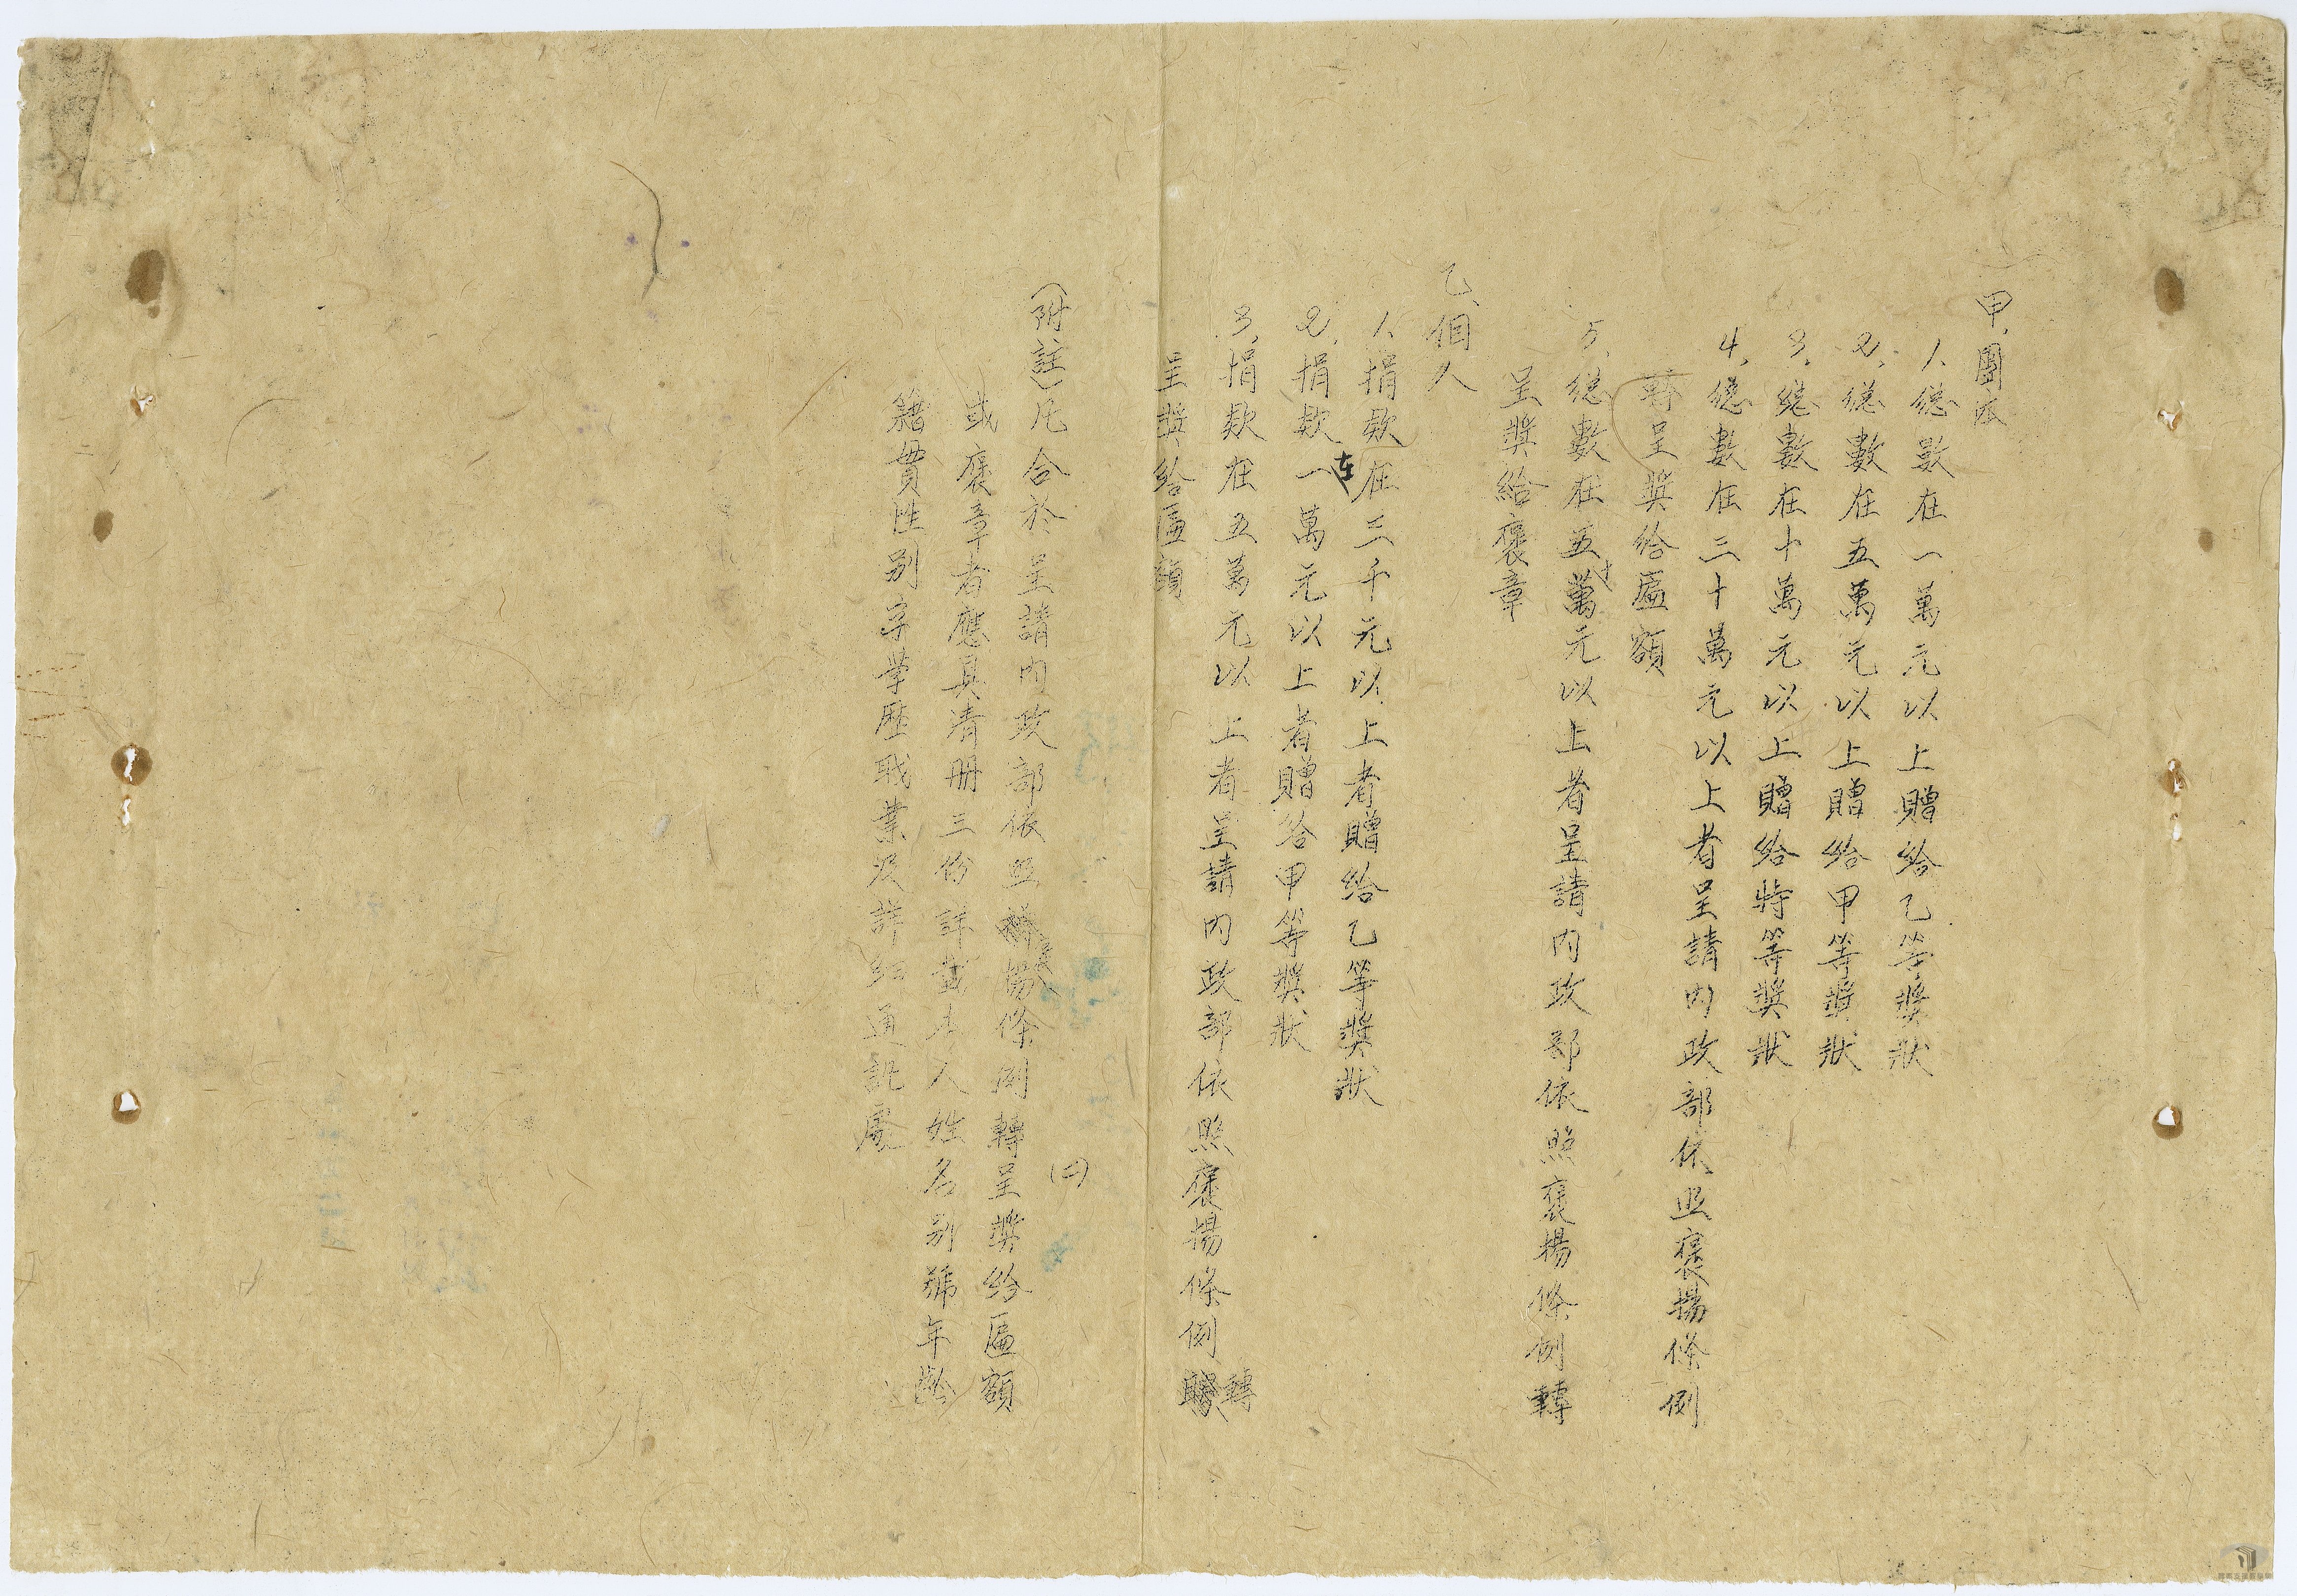 甲、團体
1、總數在一萬元以上贈給乙等獎狀
2、總數在五萬元以上贈給甲等獎狀
3、總數在十萬元以上贈給特等獎狀
4、總數在三十萬元以上者呈請內政部依照褒揚條例
轉呈獎給匾額
5、總數在五十萬元以上者呈請內政部依照褒揚條例轉
呈獎給褒章
乙、個人
1、捐款在三千元以上者贈給乙等獎狀
2、捐款在一萬元以上者贈給甲等獎狀
3、捐款在五萬元以上者呈請內政部依照褒揚條例轉
呈獎給匾額
(附註)凡合於呈請內政部依照褒揚條例轉呈獎給匾額
或褒章者應具清册三份詳載本人姓名別號年齡
籍貫性別 學歷職業及詳細通訊處
(二)